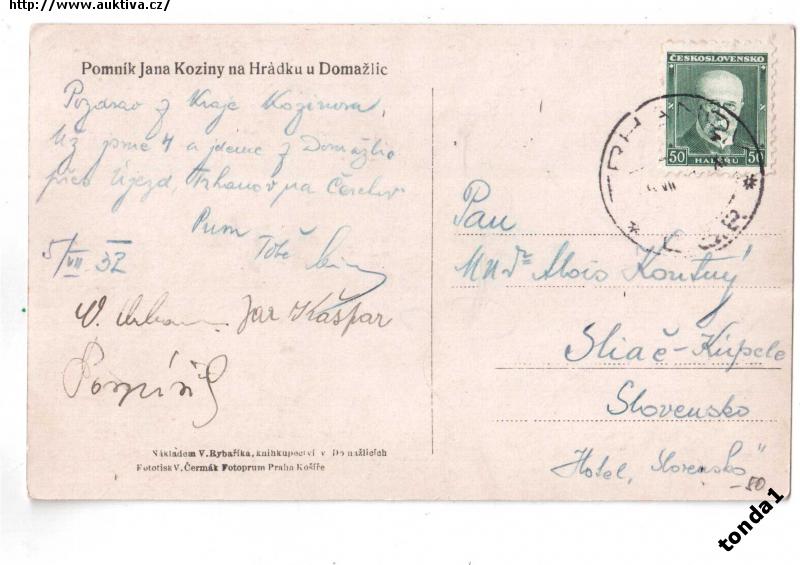 http://www.auktiva.cz/
Pomník Jana Koziny na Hrádku u Domažlic
Pozdrav z Kraje Kozinova,
Už jsme 4 a jdeme z Domažlic
přes Újezd, Trhanov na Čerchov
Tobě
5/VII 32
V. Jar Kašpar
ČESKOSLOVENSKO
50 HALÉŘŮ 50
Pan
MUDr Alois Koutný
Sliač-Kúpele
Slovensko
Hotel „Slovensko“
Nákladem V. Rybaříka, knihkupectví v Domažlicích
Fototisk V. Čermák Fotoprum Praha Košíře
50
tonda1